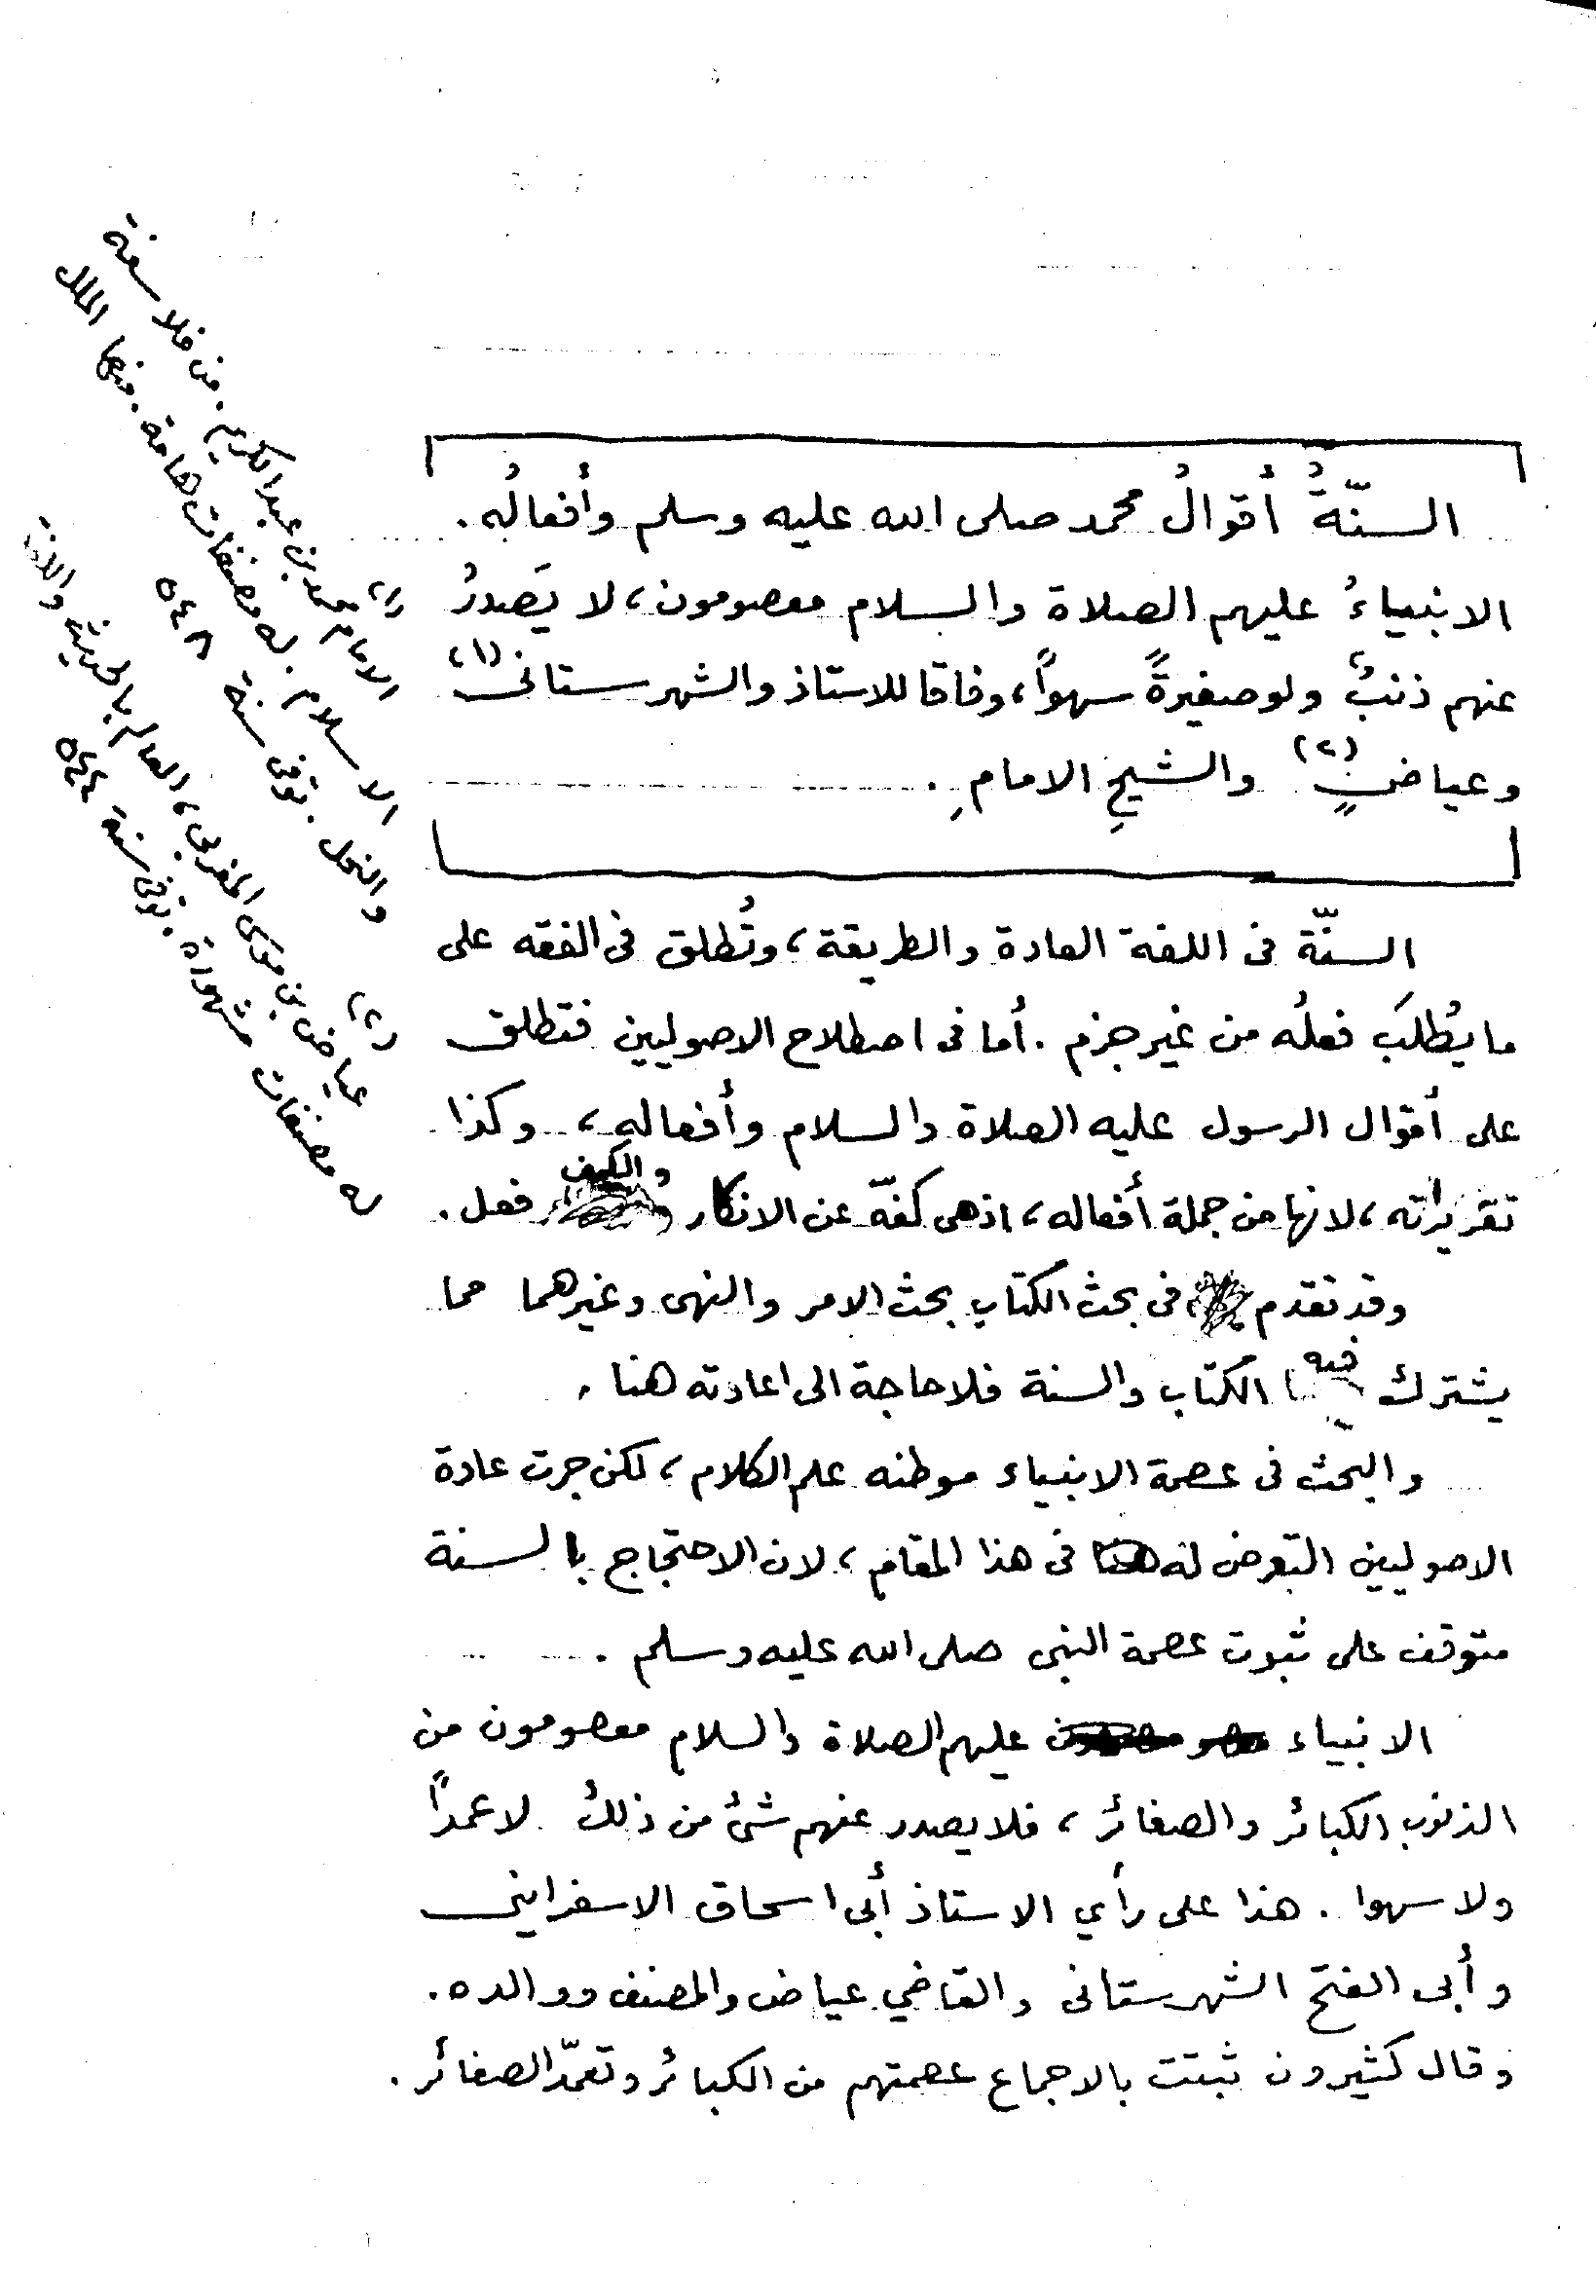 السنّةُ أقوالُ محمد صلى الله عليه وسلم وأفعالُه.
الانبياءُ عليهم الصلاة والسلام معصومون، لا يَصدرُ
عنهم ذنبٌ ولو صغيرةً سهواً، وفاقا للاستاذ والشهرستانى (١)
وعياضٍ (٢) والشيخِ الامامِ.
السنّة فى اللغة العادة والطريقة، وتُطلق فى الفقه على
ما يُطلَب فعلُه من غير جزم. أما فى اصطلاح الاصوليين فتطلق
على أقوال الرسول عليه الصلاة والسلام وأفعاله، وكذا
تقريراته، لانها من جملة أفعاله، اذ هى كفّه عن الانكار والكف فعل.
وقد تقدم فى بحث الكتاب بحث الامر والنهى وغيرهما مما
يشترك فيه الكتاب والسنة فلا حاجة الى اعادته هنا.
والبحث فى عصمة الانبياء موطنه علم الكلام، لكن جرت عادة
الاصوليين التعرض له فى هذا المقام، لان الاحتجاج بالسنة
متوقف على ثبوت عصمة النبى صلى الله عليه وسلم.
الانبياء عليهم الصلاة والسلام معصومون من
الذنوب الكبائر والصغائر، فلا يصدر عنهم شئ من ذلك لا عمداً
ولا سهوا. هذا على رأي الاستاذ أبى اسحاق الاسفراينى
وأبى الفتح الشهرستانى والقاضي عياض والمصنف ووالده.
وقال كثيرون ثبتت بالاجماع عصمتهم من الكبائر وتعمّد الصغائر.
(١) الامام محمد بن عبد الكريم. من فلاسفة
الاسلام. له مصنفات هامة. منها الملل
والنحل. توفى سنة ٥٤٨
(٢) عياض بن موسى المغربى، العالم بالحديث واللغة
له مصنفات مشهورة. توفى سنة ٥٤٤